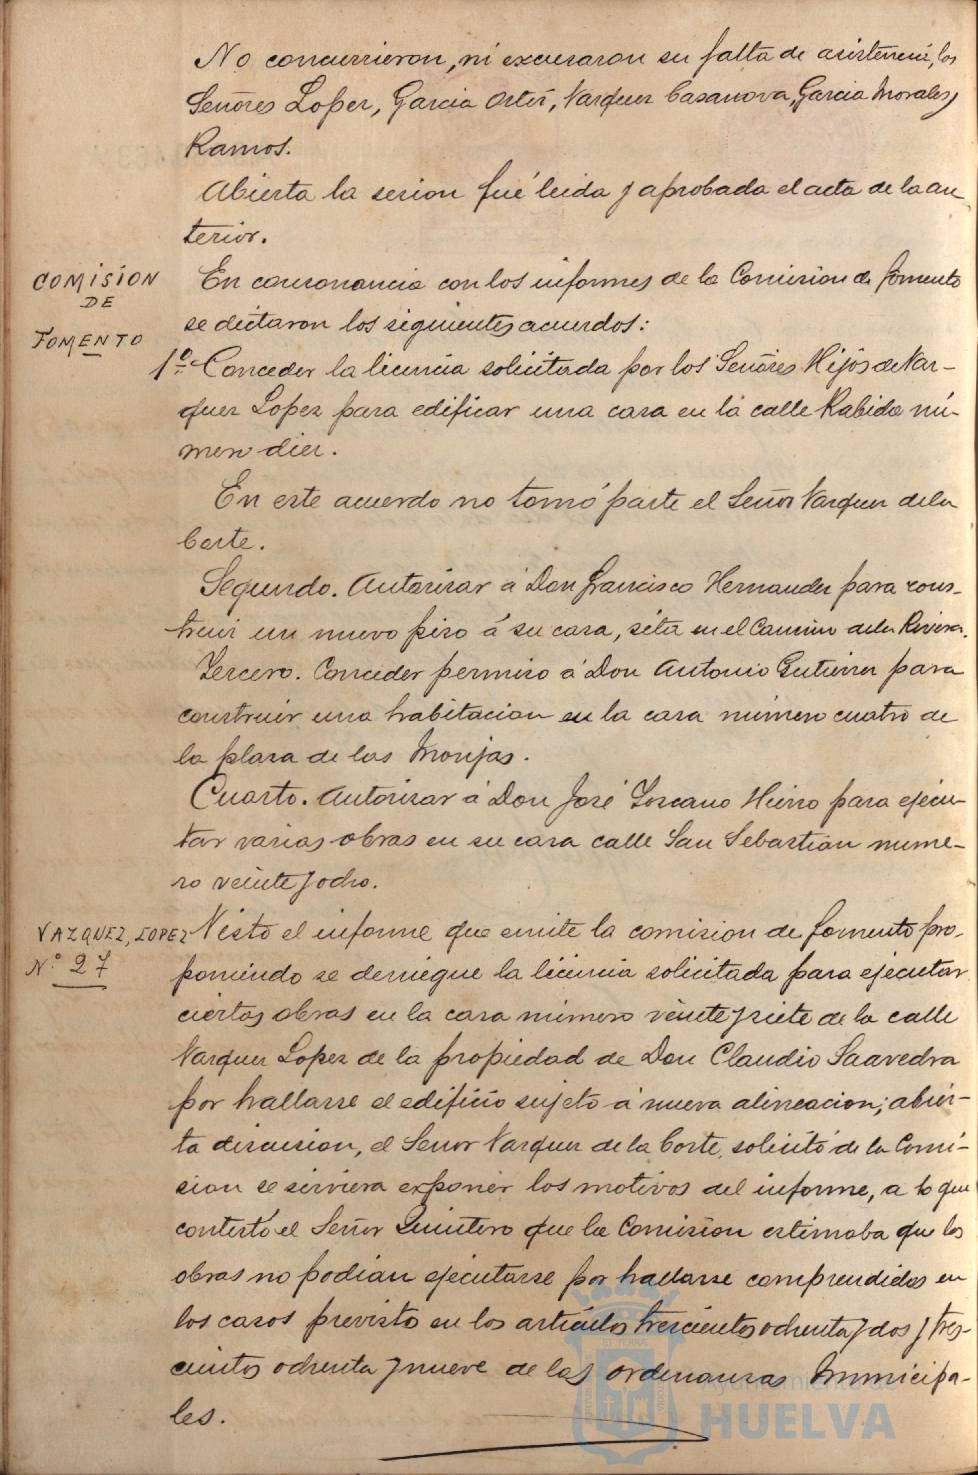 No concurrieron, ni excusaron su falta de asistencia, los
Señores Lopez, Garcia Ortiz, Vazquez Casanova, Garcia Morales y
Ramos.
Abierta la sesion fué leida y aprobada el acta de la an
terior.
COMISION
DE
FOMENTO
En consonancia con los informes de la Comision de fomento
se dictaron los siguientes acuerdos:
1º Conceder la licencia solicitada por los Señores Hijos de Vaz-
quez Lopez para edificar una casa en la calle Rabida nú-
mero diez.
En este acuerdo no tomó parte el Señor Vazquez de la
Corte.
Segundo. Autorizar á Don Francisco Hernandez para cons-
truir un nuevo piso á su casa, sita en el Camino de la Rivera.
Tercero. Conceder permiso á Don Antonio Gutierrez para
construir una habitacion en la casa número cuatro de
la plaza de las Monjas.
Cuarto. Autorizar á Don José Toscano Hierro para ejecu-
tar varias obras en su casa calle San Sebastian nume-
ro veinte y ocho.
VAZQUEZ, LOPEZ
Nº 27
Visto el informe que emite la comision de fomento pro-
poniendo se deniegue la licencia solicitada para ejecutar
ciertas obras en la casa número veinte y siete de la calle
Vazquez Lopez de la propiedad de Don Claudio Saavedra
por hallarse el edificio sujeto á nueva alineacion; abier-
ta discusion, el Señor Vazquez de la Corte, solicitó de la Comi-
sion se sirviera exponer los motivos del informe, a lo que
contestó el Señor Quintero que la Comision estimaba que las
obras no podian ejecutarse por hallarse comprendidas en
los casos previsto en los articulos trescientos ochenta y dos y tres-
cientos ochenta y nueve de las ordenanzas Municipa-
les.
Ayuntamiento de
HUELVA